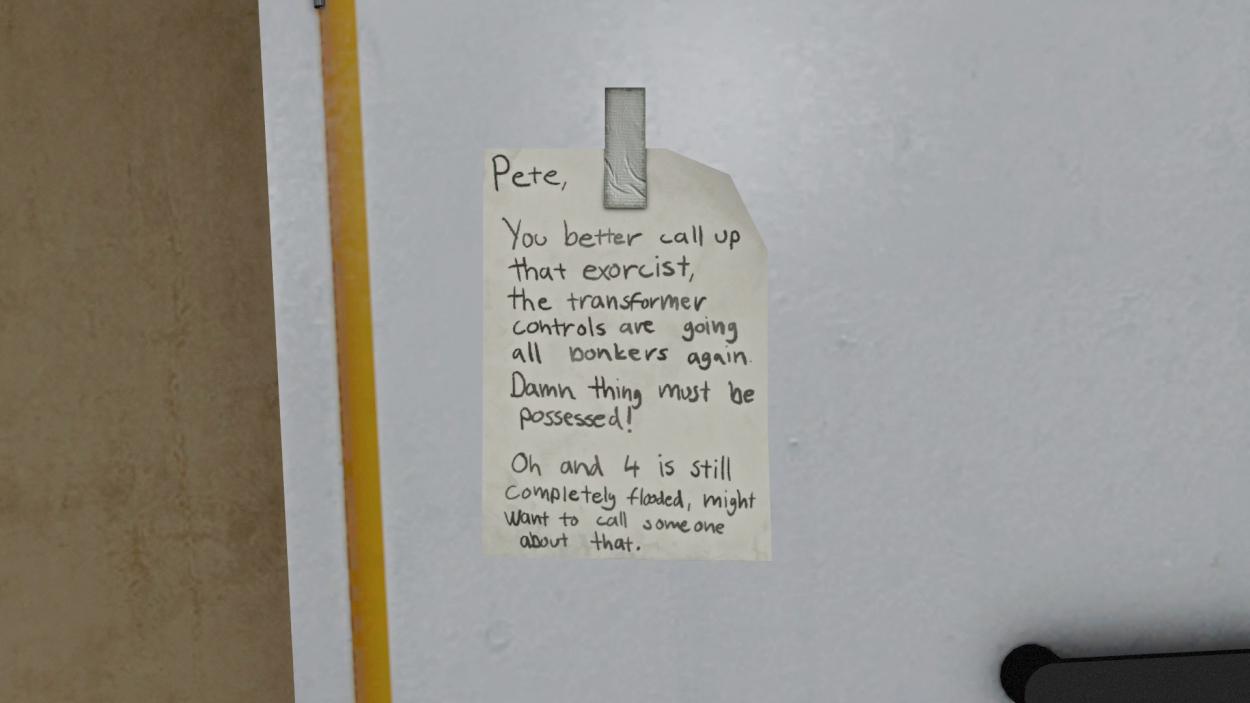 Pete,
You better call up
that exorcist,
the transformer
controls are going
all bonkers again.
Damn thing must be
possessed!
Oh and 4 is still
completely flooded, might
want to call someone
about that.